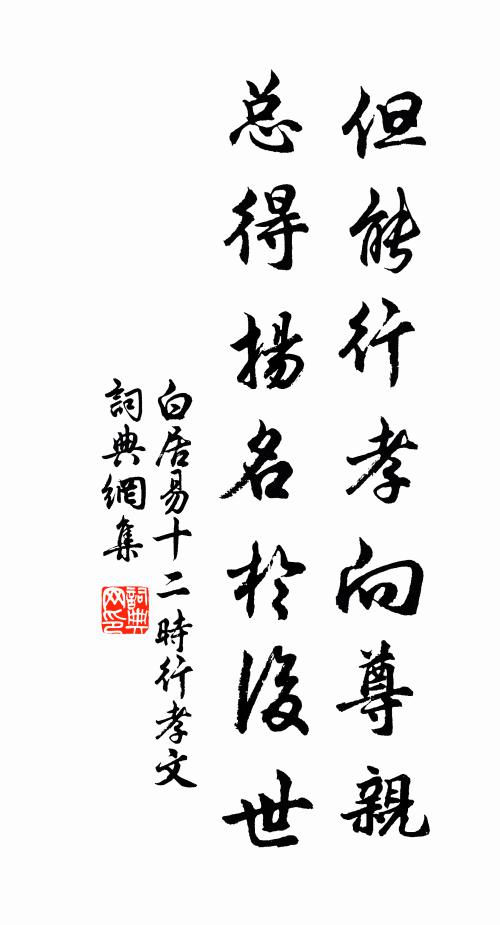 但能行孝向尊親
总得揚名於後世
白居易十二時行孝文
詞典網集
詞典网印